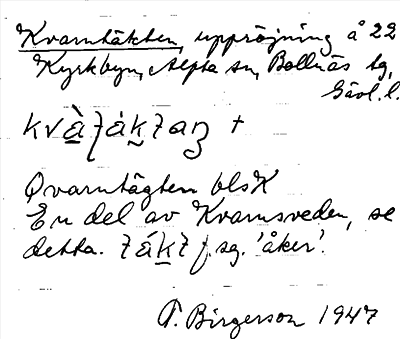 Kvarntäkten, uppröjning å 22
Kyrkbyn, Alfta sn, Bollnäs tg,
Gävl. l.
+
Qvarntägten blsK
En del av Kvarnsveden, se
detta. f. sg. 'åker'.
T. Birgerson 1947